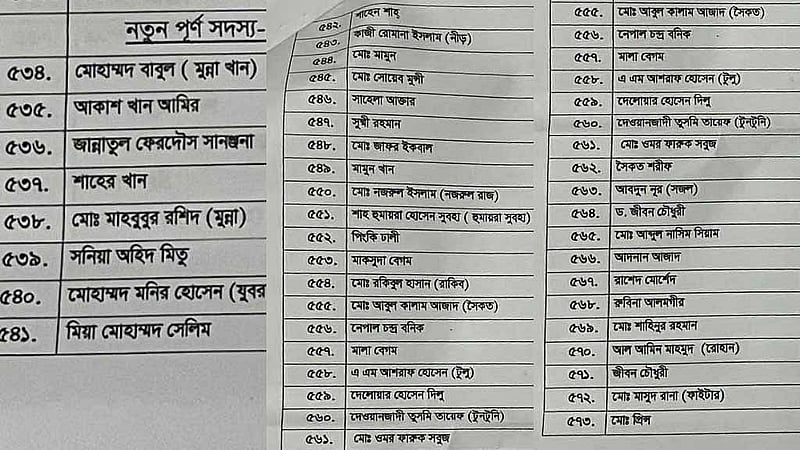 নতুন পূর্ণ সদস্য-
৫৩৪. মোহাম্মদ বাবুল ( মুন্না খান)
৫৩৫. আকাশ খান আমির
৫৩৬. জান্নাতুল ফেরদৌস সানজানা
৫৩৭. শাহের খান
৫৩৮. মোঃ মাহবুবুর রশিদ (মুন্না)
৫৩৯. সনিয়া অহিদ মিতু
৫৪০. মোহাম্মদ মনির হোসেন (যুবর
৫৪১. মিয়া মোহাম্মদ সেলিম
৫৪২. শাহেন শাহ্
৫৪৩. কাজী রোমানা ইসলাম (নীড়)
৫৪৪. মোঃ মামুন
৫৪৫. মোঃ সোয়েব মুন্সী
৫৪৬. সাহেলা আক্তার
৫৪৭. সুমী রহমান
৫৪৮. মোঃ জাফর ইকবাল
৫৪৯. মামুন খান
৫৫০. মোঃ নজরুল ইসলাম (নজরুল রাজ)
৫৫১. শাহ হুমায়রা হোসেন সুবহা ( হুমায়রা সুবহা)
৫৫২. পিংকি ঢালী
৫৫৩. মাকসুদা বেগম
৫৫৪. মোঃ রকিবুল হাসান (রাকিব)
৫৫৫. মোঃ আবুল কালাম আজাদ (সৈকত)
৫৫৬. নেপাল চন্দ্র বনিক
৫৫৭. মালা বেগম
৫৫৮. এ এম আশরাফ হোসেন (টুলু)
৫৫৯. দেলোয়ার হোসেন দিলু
৫৬০. দেওয়ানজাদী তুলমি তায়েফ (টুনটুনি)
৫৬১. মোঃ ওমর ফারুক সবুজ
৫৫৫. মোঃ আবুল কালাম আজাদ (সৈকত)
৫৫৬. নেপাল চন্দ্র বনিক
৫৫৭. মালা বেগম
৫৫৮. এ এম আশরাফ হোসেন (টুলু)
৫৫৯. দেলোয়ার হোসেন দিলু
৫৬০. দেওয়ানজাদী তুলমি তায়েফ (টুনটুনি)
৫৬১. মোঃ ওমর ফারুক সবুজ
৫৬২. সৈকত শরীফ
৫৬৩. আবদুন নূর (সজল)
৫৬৪. ড. জীবন চৌধুরী
৫৬৫. মোঃ আব্দুল নাসিম সিয়াম
৫৬৬. আদনান আজাদ
৫৬৭. রাশেদ মোর্শেদ
৫৬৮. রুবিনা আলমগীর
৫৬৯. মোঃ শাহিনুর রহমান
৫৭০. আল আমিন মাহমুদ (রোহান)
৫৭১. জীবন চৌধুরী
৫৭২. মোঃ মাসুদ রানা (ফাইটার)
৫৭৩. মোঃ প্রিন্স